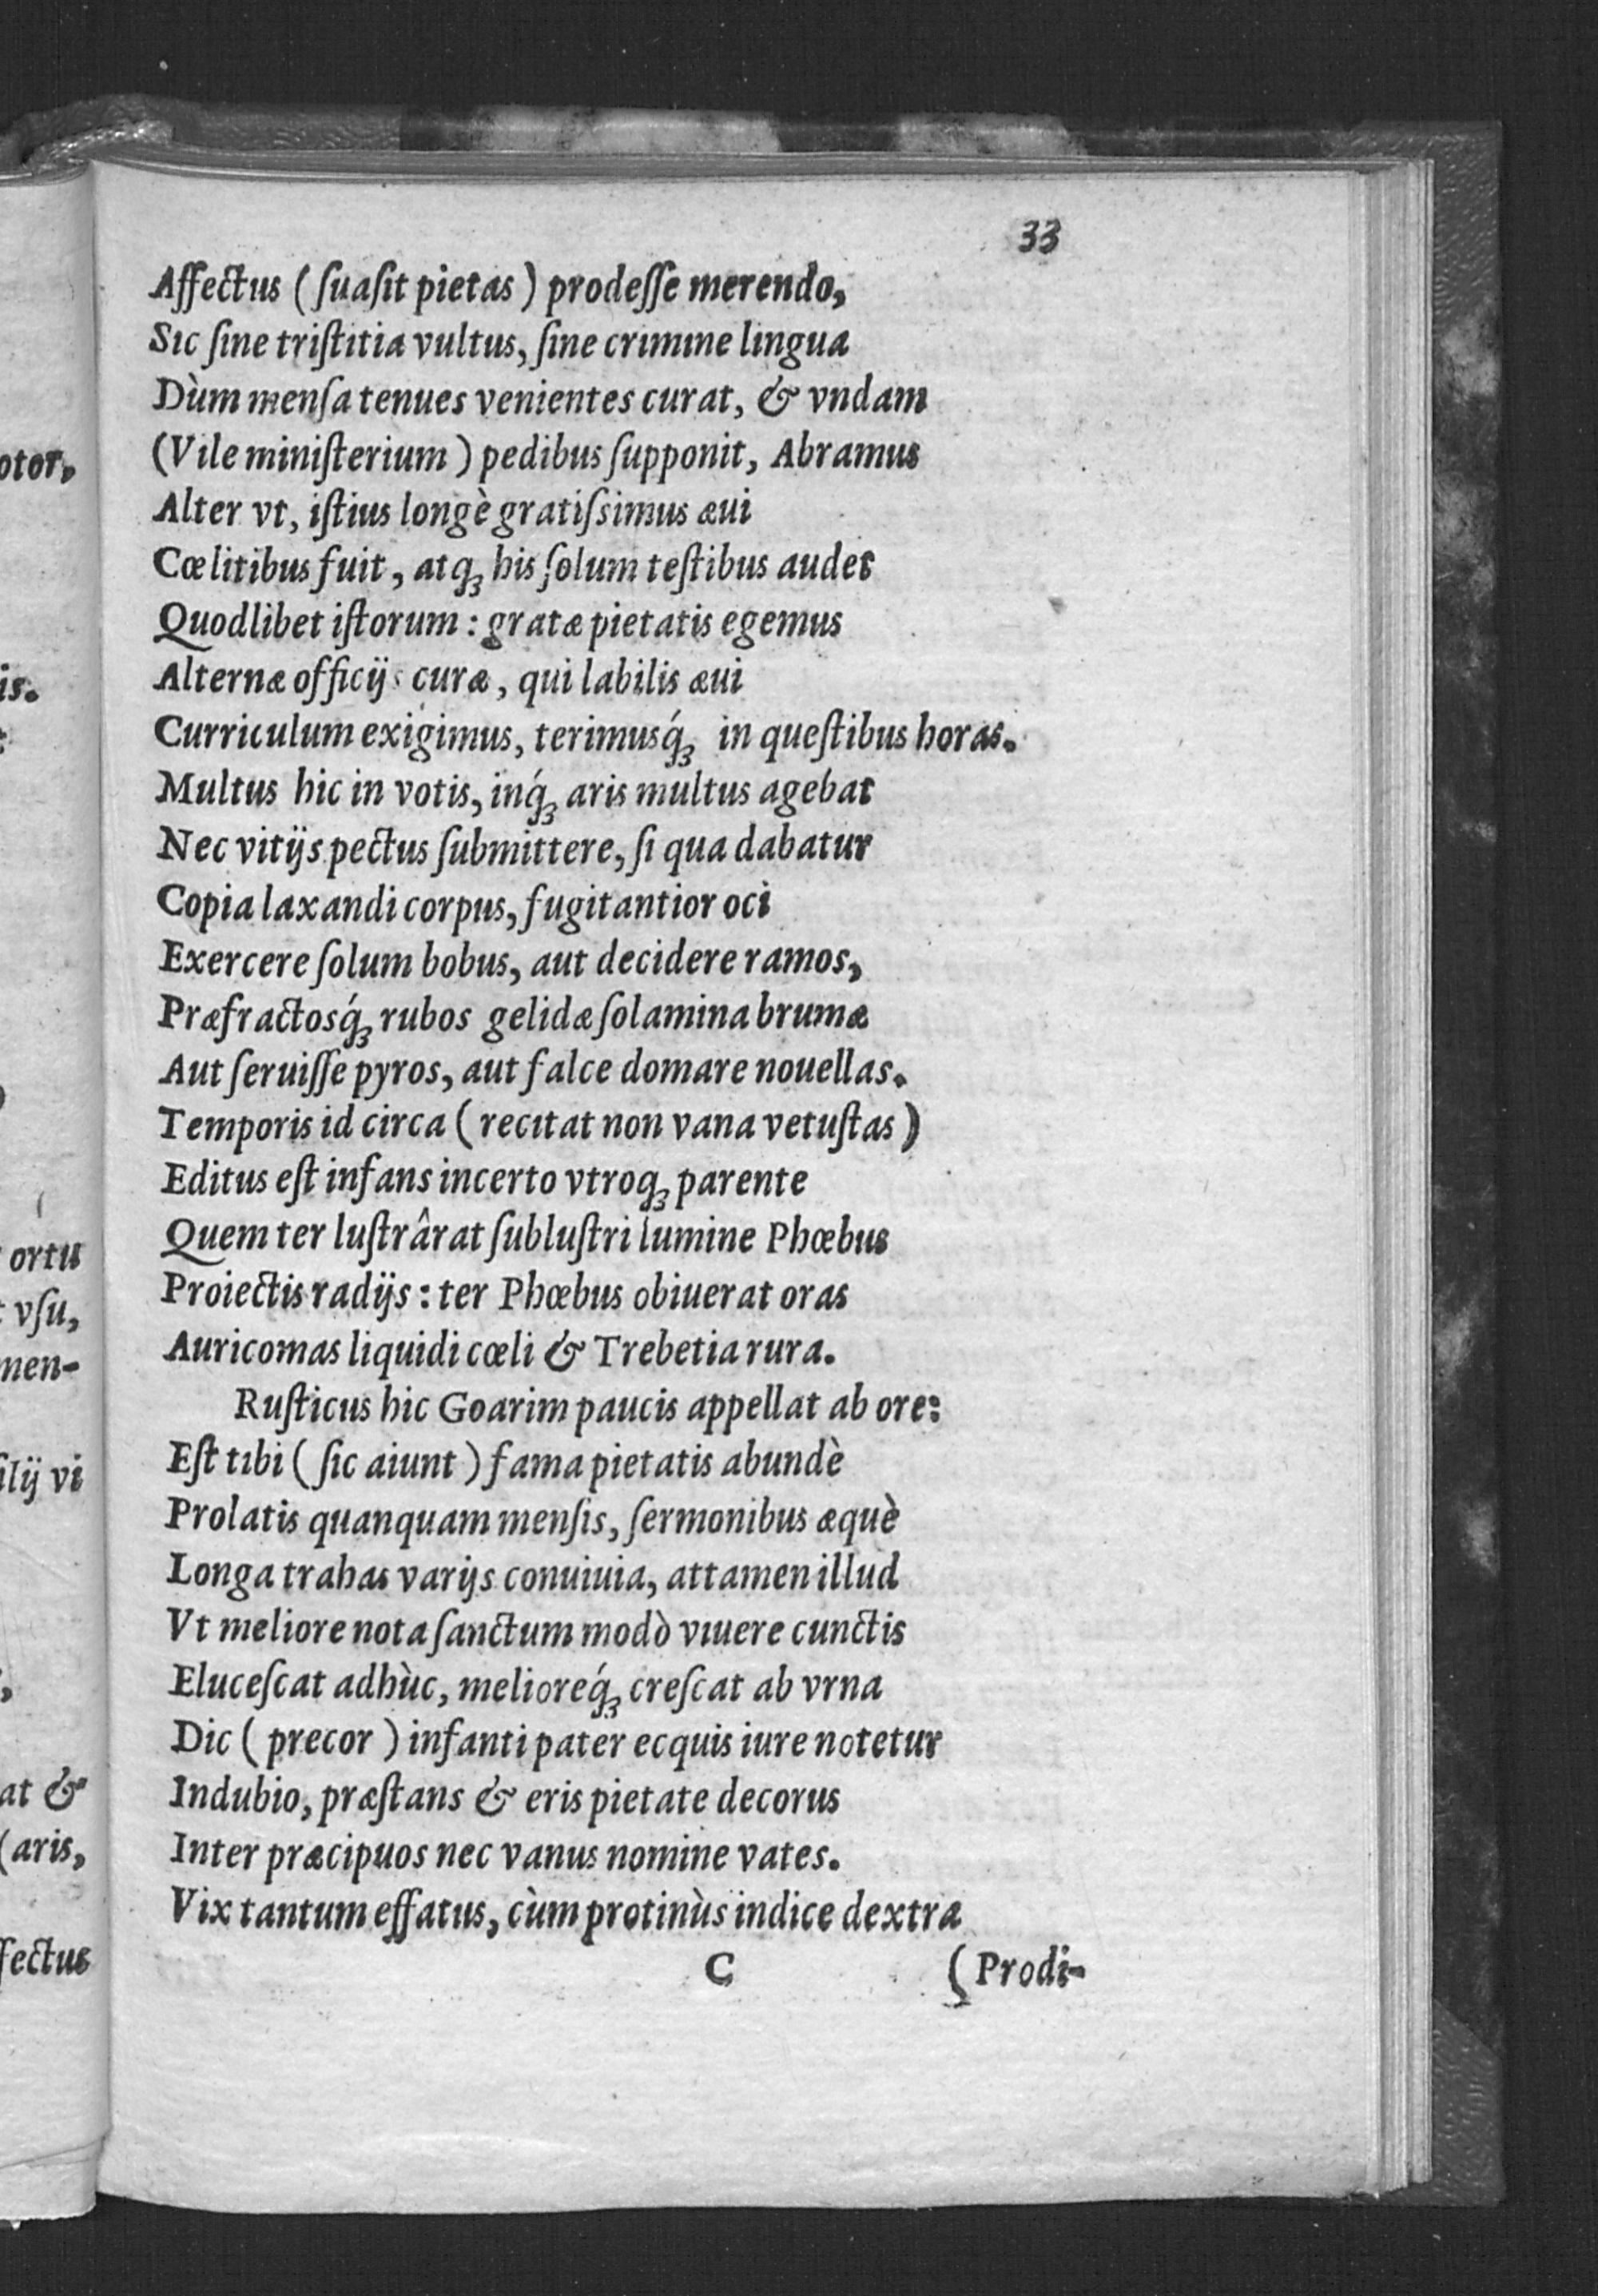 33
Affectus (ſuaſit pietas) prodeſſe merendo,
Sic ſine triſtitia vultus, ſine crimine lingua
Dùm menſa tenues venientes curat, & vndam
(Vile miniſterium) pedibus ſupponit, Abramus
Alter vt, iſtius longè gratiſsimus æui
Cœlitibus fuit, atq́ꝫ his ſolum teſtibus audet
Quodlibet iſtorum: gratæ pietatis egemus
Alternæ officijs curæ, qui labilis æui
Curriculum exigimus, terimusq́ꝫ in queſtibus horas.
Multus hic in votis, inq́ꝫ aris multus agebat
Nec vitijs pectus ſubmittere, ſi qua dabatur
Copia laxandi corpus, fugitantior oci
Exercere ſolum bobus, aut decidere ramos,
Præfractosq́ꝫ rubos gelidæ ſolamina brumæ
Aut ſeruiſſe pyros, aut falce domare nouellas.
Temporis id circa (recitat non vana vetuſtas)
Editus eſt infans incerto vtroqꝫ parente
Quem ter luſtrârat ſubluſtri lumine Phœbus
Proiectis radijs: ter Phœbus obiuerat oras
Auricomas liquidi cœli & Trebetia rura.
Ruſticus hic Goarim paucis appellat ab ore:
Eſt tibi (ſic aiunt) fama pietatis abundè
Prolatis quanquam menſis, ſermonibus æquè
Longa trahas varijs conuiuia, attamen illud
Vt meliore nota ſanctum modò viuere cunctis
Eluceſcat adhùc, melioreq́ꝫ creſcat ab vrna
Dic (precor) infanti pater ecquis iure notetur
Indubio, præſtans & eris pietate decorus
Inter præcipuos nec vanus nomine vates.
Vix tantum effatus, cùm protinùs indice dextra
C (Prodi-
ortu
vſu,
men-
vi
at &
(aris,